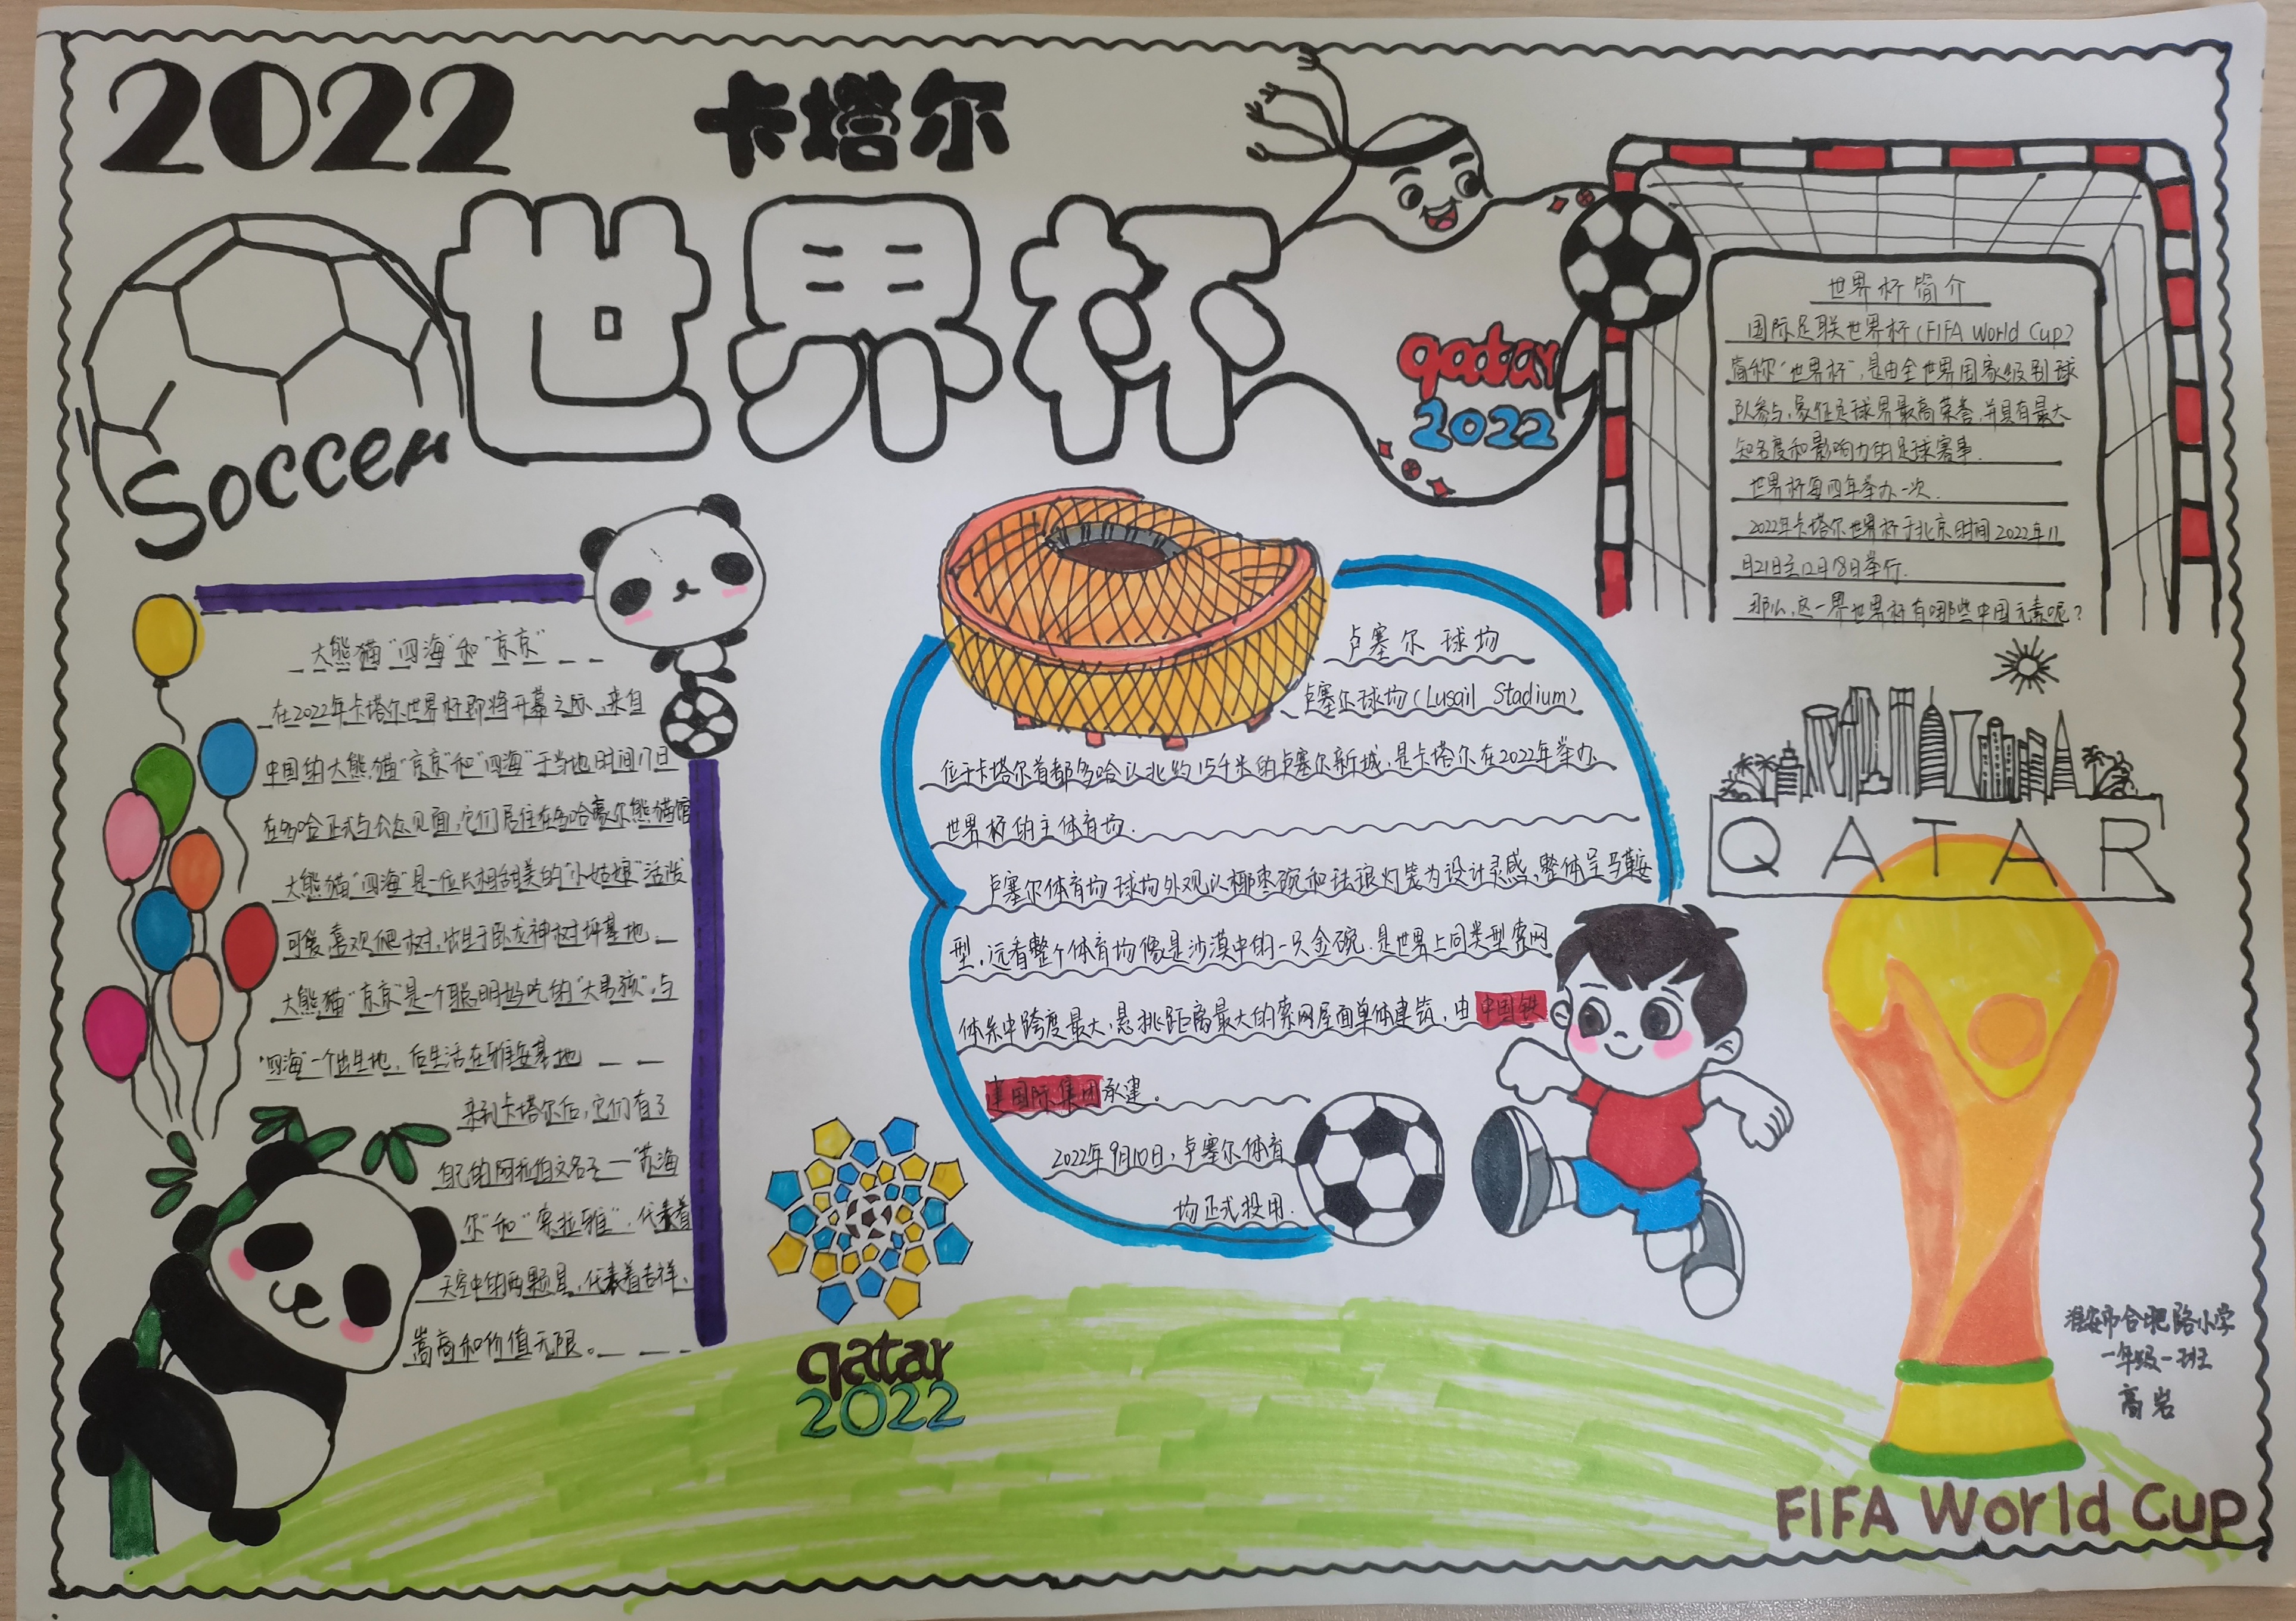 2022
卡塔尔
世界杯
Soccer
qatar
2022
世界杯简介
国际足联世界杯(FIFA World Cup)
简称“世界杯”,是由全世界国家级别球
队参与,象征足球界最高荣誉,并具有最大
知名度和影响力的足球赛事.
世界杯每四年举办一次.
2022年卡塔尔世界杯于北京时间2022年11
月21日至12月18日举行.
那么,这一界世界杯有哪些中国元素呢?
大熊猫“四海”和“京京”
在2022年卡塔尔世界杯即将开幕之际,来自
中国的大熊猫“京京”和“四海”于当地时间17日
在多哈正式与公众见面,它们居住在多哈豪尔熊猫馆
大熊猫“四海”是一位长相甜美的“小姑娘”活泼
可爱,喜欢爬树,出生于卧龙神树坪基地.
大熊猫“京京”是一个聪明好吃的“大男孩”,与
“四海”一个出生地,后生活在雅安基地
来到卡塔尔后,它们有了
自己的阿拉伯文名字—“苏海
尔”和“索拉雅”,代表着
天空中的两颗星,代表着吉祥、
嵩高和价值无限。
卢塞尔球场
卢塞尔球场(Lusail Stadium)
位于卡塔尔首都多哈以北约15千米的卢塞尔新城,是卡塔尔在2022年举办
世界杯的主体育场.
卢塞尔体育场球场外观以椰枣碗和珐琅灯笼为设计灵感,整体呈马鞍
型,远看整个体育场像是沙漠中的一只金碗.是世界上同类型索网
体系中跨度最大,悬挑距离最大的索网屋面单体建筑,由中国铁
建国际集团承建。
2022年9月10日,卢塞尔体育
场正式投用.
QATAR
qatar
2022
淮安市合肥路小学
一年级一班
高岩
FIFA World Cup